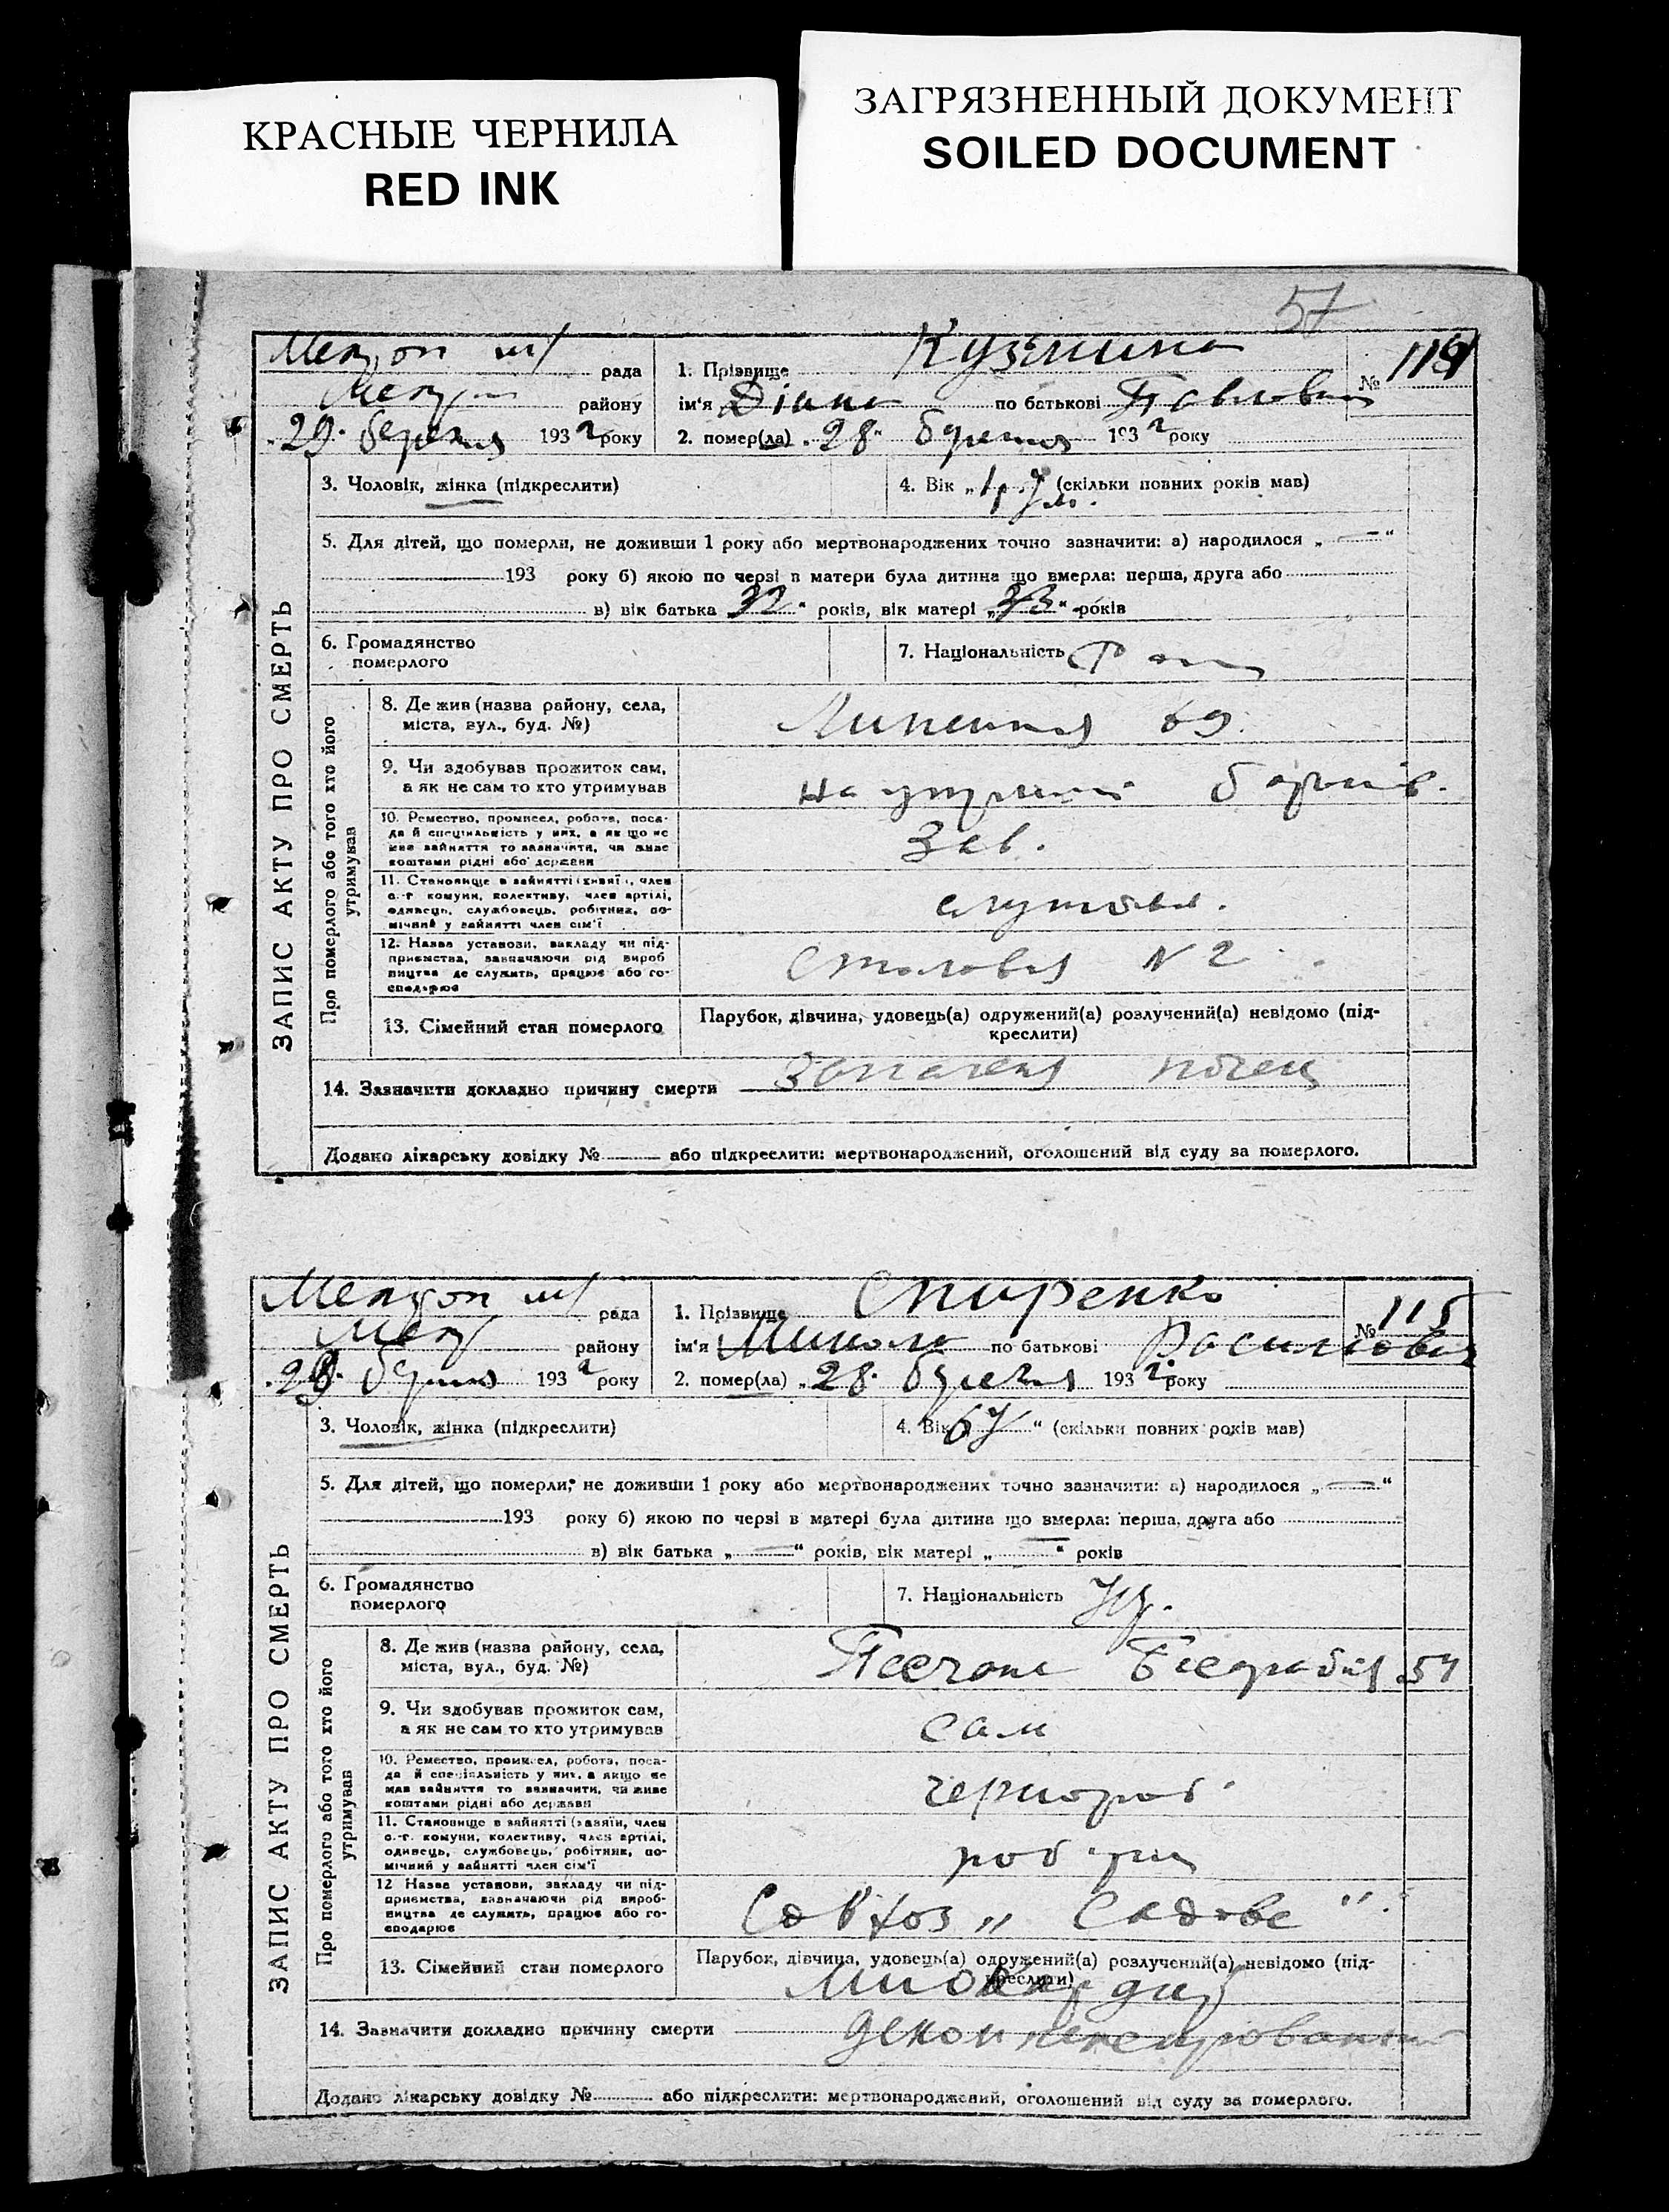 КРАСНЫЕ ЧЕРНИЛА
RED INK
ЗАГРЯЗНЕННЫЙ ДОКУМЕНТ
SOILED DOCUMENT
57
рада
району
29. березня 1932 року
1. Прізвище Кузьмина
№
ім'я Діана по батькові Павловна
2. помер(ла) „28" березня 1932 року
ЗАПИС АКТУ ПРО СМЕРТЬ
3. Чоловік, жінка (підкреслити)
4. Вік „ " (скільки повних років мав)
5. Для дітей, що померли, не доживши 1 року або мертвонароджених точно зазначити: а) народилося „ — "
193 року б) якою по черзі в матери була дитина що вмерла: перша, друга або
в) вік батька 32 " років, вік матері „ 33 " років
6. Громадянство
померлого
7. Національність
Про померлого або того хто його
утримував
8. Де жив (назва району, села,
міста, вул., буд. №)
69.
9. Чи здобував прожиток сам,
а як не сам то хто утримував
на батьків.
10. Ремество, промисел, робота, поса-
да й спеціяльність у них, а як що не
мав зайняття то зазначити, чи живе
коштами рідні або держави
Зав.
11. Становище в зайнятті (хазяїн, член
с.-г. комуни, колективу, член артілі,
одинець, службовець, робітник, по-
мічний у зайнятті член сім'ї
службов.
12. Назва установи, закладу чи під-
приємства, зазначаючи рід вироб
ництва де служить, працює або го-
сподарює
Столовая N 2
13. Сімейний стан померлого
Парубок, дівчина, удовець(а) одружений(а) розлучений(а) невідомо (під-
креслити)
14. Зазначити докладно причину смерти Запалення легень
Додано лікарську довідку № або підкреслити: мертвонароджений, оголошений від суду за померлого.
рада
району
березня 1932 року
1. Прізвище Спиренко
№ 115
ім'я Микола по батькові Васильович
2. помер(ла) „28" березня 1932 року
ЗАПИС АКТУ ПРО СМЕРТЬ
3. Чоловік, жінка (підкреслити)
4. Вік 67 " (скільки повних років мав)
5. Для дітей, що померли, не доживши 1 року або мертвонароджених точно зазначити: а) народилося „ — "
193 року б) якою по черзі в матері була дитина що вмерла: перша, друга або
в) вік батька „ — " років, вік матері „ — " років
6. Громадянство
померлого
7. Національність Укр.
Про померлого або того хто його
утримував
8. Де жив (назва району, села,
міста, вул., буд. №)
Песчане
9. Чи здобував прожиток сам,
а як не сам то хто утримував
сам
10. Ремество, промисел, робота, поса-
да й спеціяльність у них, а якщо не
мав зайняття то зазначити, чи живе
коштами рідні або держави
чернороб
11. Становище в зайнятті (хазяїн, член
с.-г. комуни, колективу, член артілі,
одинець, службовець, робітник, по-
мічний у зайнятті член сім'ї
робітник
12 Назва установи, закладу чи під-
приємства, зазначаючи рід вироб-
ництва де служить, працює або го-
сподарює
Совхоз „Садове".
13. Сімейний стан померлого
Парубок, дівчина, удовець(а) одружений(а) розлучений(а) невідомо (під-
креслити)
Миокардит
14. Зазначити докладно причину смерти декомпенсированный
Додано лікарську довідку № або підкреслити: мертвонароджений, оголошений від суду за померлого.